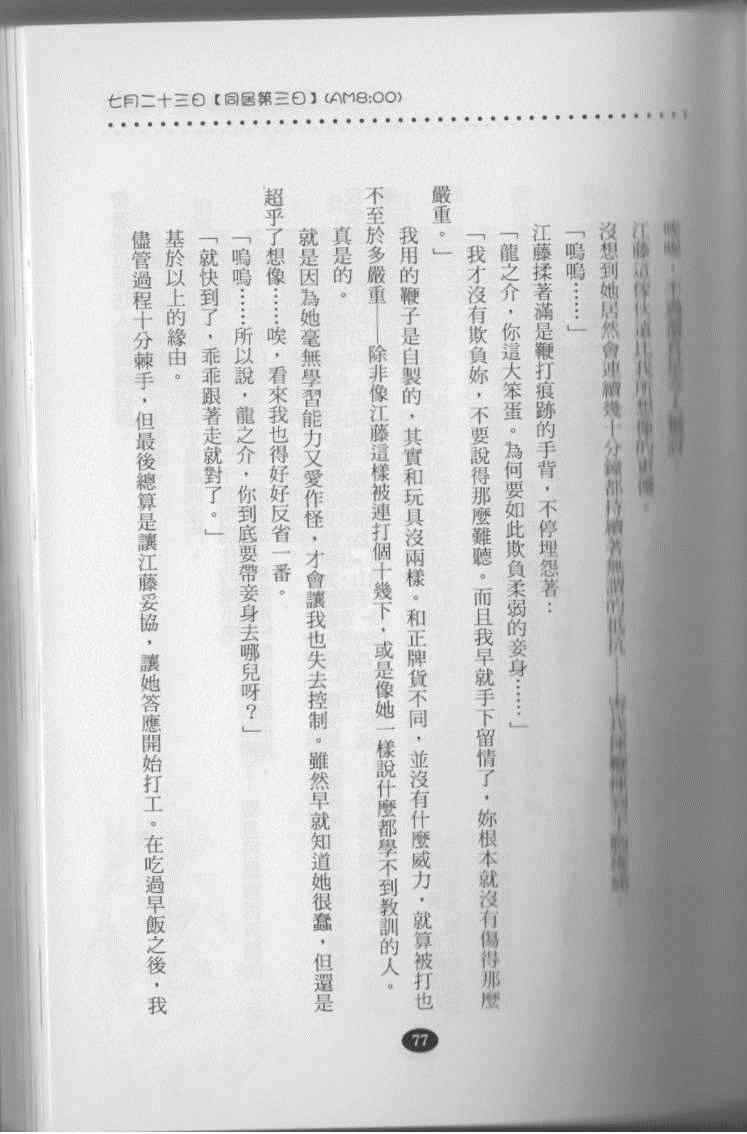 七月二十三日【同居第三日】(AM8:00)
江藤這傢伙遠比我所想像的更
沒想到她居然會連續幾十分鐘都持續著無謂的抵抗——
「嗚嗚……」
江藤揉著滿是鞭打痕跡的手背，不停埋怨著：
「龍之介，你這大笨蛋。為何要如此欺負柔弱的妾身……」
「我才沒有欺負妳，不要說得那麼難聽。而且我早就手下留情了，妳根本就沒有傷得那麼
嚴重。」
我用的鞭子是自製的，其實和玩具沒兩樣。和正牌貨不同，並沒有什麼威力，就算被打也
不至於多嚴重——除非像江藤這樣被連打個十幾下，或是像她一樣說什麼都學不到教訓的人。
真是的。
就是因為她毫無學習能力又愛作怪，才會讓我也失去控制。雖然早就知道她很蠢，但還是
超乎了想像……唉，看來我也得好好反省一番。
「嗚嗚……所以說，龍之介，你到底要帶妾身去哪兒呀？」
「就快到了，乖乖跟著走就對了。」
基於以上的緣由。
儘管過程十分棘手，但最後總算是讓江藤妥協，讓她答應開始打工。在吃過早飯之後，我
77